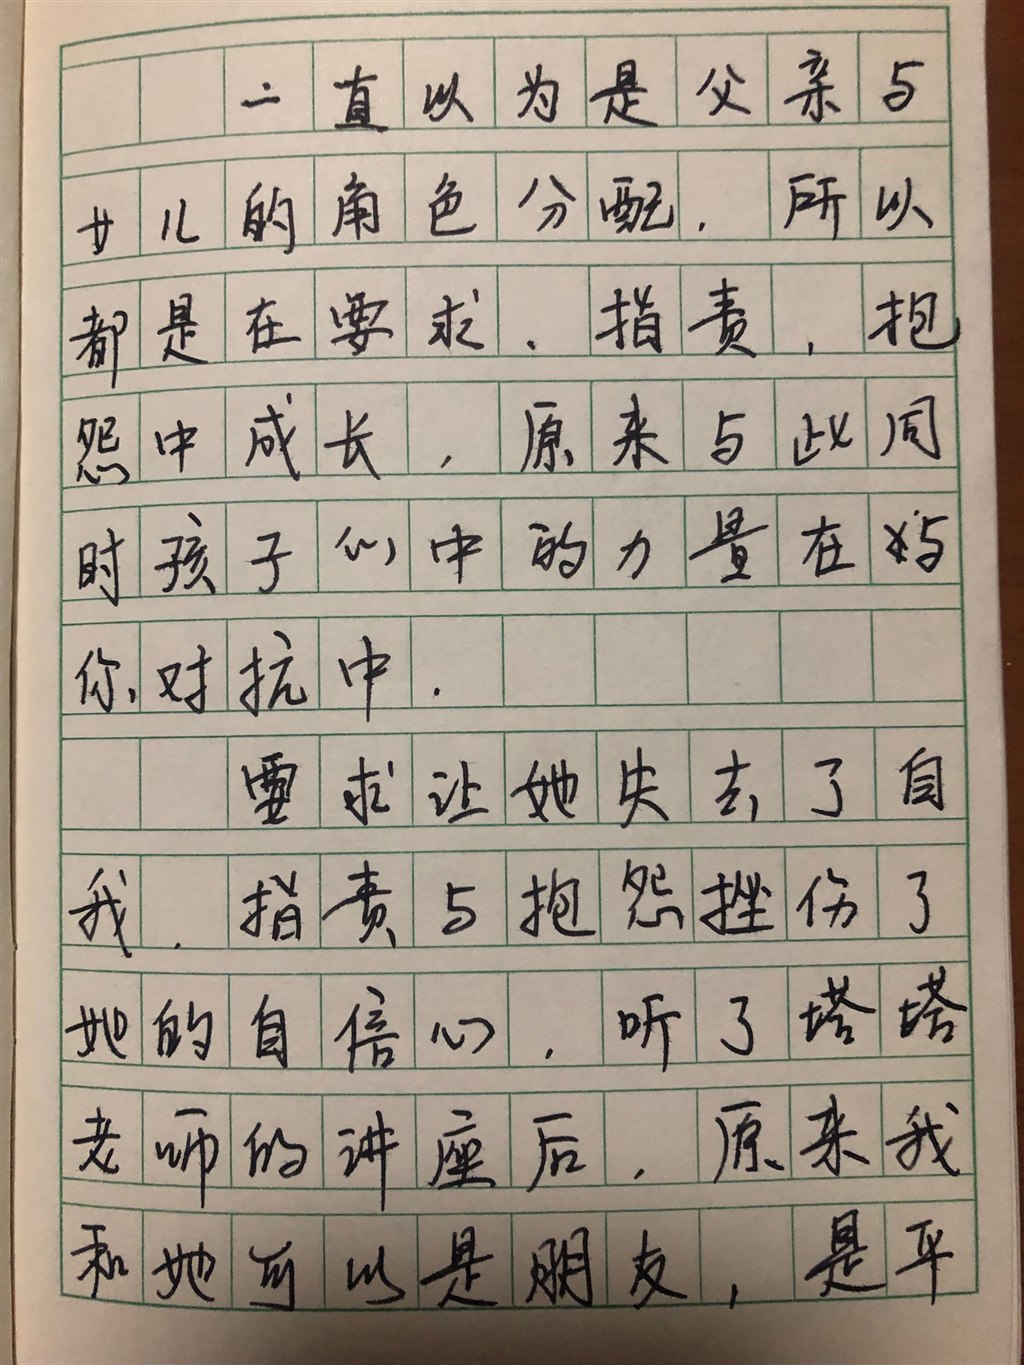 一直以为是父亲与
女儿的角色分配. 所以
都是在要求. 指责, 抱
怨中成长, 原来与此同
时孩子心中的力量在与
你对抗中.
要求让她失去了自
我. 指责与抱怨挫伤了
她的自信心, 听了塔塔
老师的讲座后, 原来我
和她可以是朋友, 是平